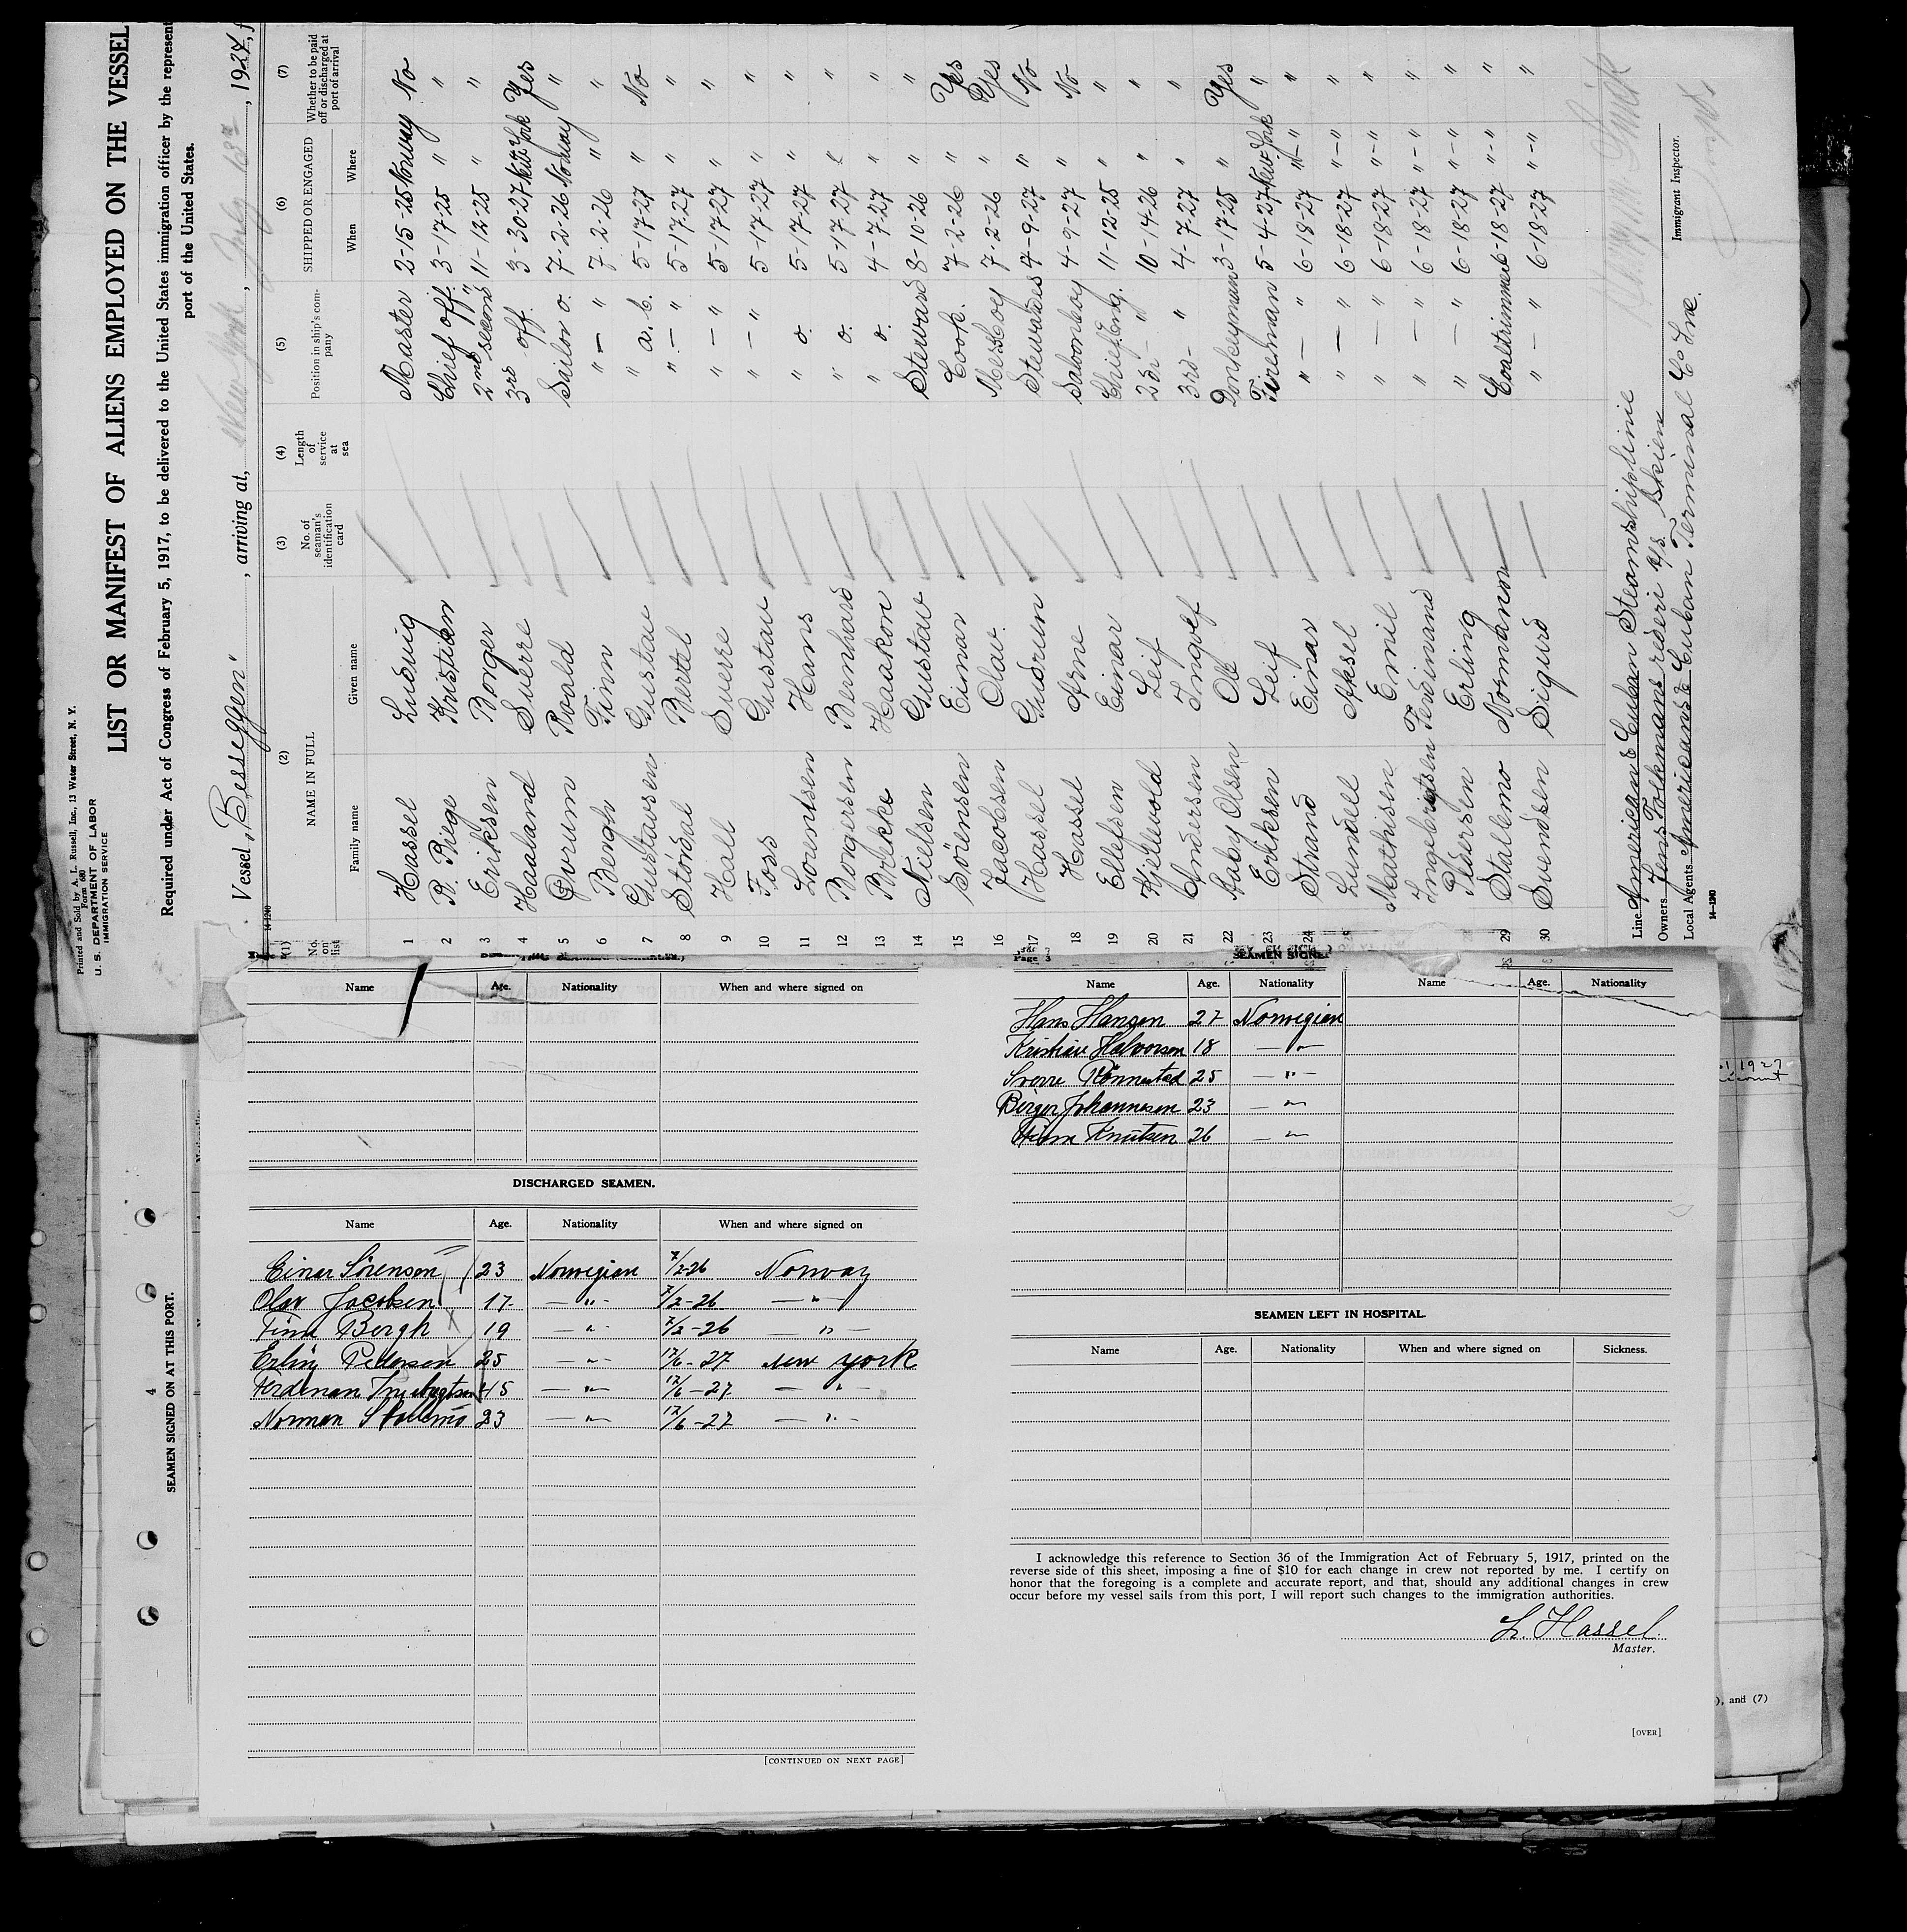 Printed and Sold by A. L. Russell, Inc., 13 Water Street, N. Y.
Form 680
U. S. DEPARTMENT OF LABOR
IMMIGRATION SERVICE
LIST OR MANIFEST OF ALIENS EMPLOYED ON THE VESSEL
Required under Act of Congress of February 5, 1917, to be delivered to the United States immigration officer by the represent
port of the United States.
Vessel "Besseggen", arriving at, New York, July 13th, 1927, f
(1) (2) (3) (4) (5) (6) (7)
No. on list NAME IN FULL No. of seaman's identification card Length of service at sea Position in ship's company SHIPPED OR ENGAGED Whether to be paid off or discharged at port of arrival
Family name Given name When Where
1 Hassel Ludvig Master 2-15-25 Norway No
2 B. Bege Kristian Chief off. 3-17-25 " "
3 Eriksen Borger 2nd second " 11-12-25 " "
4 Haaland Sverre 3rd off. 3-30-27 New York Yes
5 Roald Sailor o. 7-2-26 Norway "
6 Bergh Finn " — " 7-2-26 " "
7 Gustavsen Gustav " a. b. 5-17-27 " No
8 Stordal Bertel " — " 5-17-27 " "
9 Hall Sverre " — " 5-17-27 " "
10 Foss Gustav " — " 5-17-27 " "
11 Lorentsen Hans " o. 5-17-27 " "
12 Borgersen Bernhard " o. 5-17-27 " "
13 Brekke Haakon " o. 4-7-27 " "
14 Nielsen Gustav Steward 8-10-26 " "
15 Sörensen Einar Cook. 7-2-26 " Yes
16 Jacobsen Olav Messboy 7-2-26 " Yes
17 Hassel Gudrun Stewardes 4-9-27 " No
18 Hassel Arne Saloonboy 4-9-27 " No
19 Ellefsen Einar Chief Eng. 11-12-25 " "
20 Kjellevold Leif 2nd — " 10-14-26 " "
21 Andersen Ingolf 3rd — " 4-7-27 " "
22 Aaby Olsen Ole Donkeyman 3-17-25 " Yes
23 Eriksen Leif Fireman 5-4-27 New York "
24 Strand Einar " — " 6-18-27 "—" "
Lundell Aksel " — " 6-18-27 "—" "
Mathisen Emil " — " 6-18-27 "—" "
Ingebrigtsen Ferdinand " — " 6-18-27 "—" "
Pedersen Erling " — " 6-18-27 "—" "
29 Stallemo Norman Coaltrimmer 6-18-27 "—" "
30 Svendsen Sigurd " — " 6-18-27 "—" "
Line American & Cuban Steamshipline
Owners Jens Folkmans rederi A/S. Skien
Local Agents American & Cuban Terminal C Inc.
Immigrant Inspector.
14—1240
Name Age. Nationality When and where signed on
DISCHARGED SEAMEN.
Name Age. Nationality When and where signed on
Einar Sörenson 23 Norwegian 7/2-26 Norway
Olav Jacobsen 17 — " — 7/2-26 — " —
Finn Bergh 19 — " — 7/2-26 — " —
Erling Pedersen 25 — " — 17/6-27 New York
Ferdinan Ingebrigtsen 45 — " — 17/6-27 — "
Norman Stallemo 23 — " — 17/6-27 — " —
[CONTINUED ON NEXT PAGE]
Page 3
Name Age. Nationality Name Age. Nationality
Hans Hansen 27 Norwegian
Kristian Halvorsen 18 — " —
Sverre Rönnestad 25 — " —
Birger Johannesen 23 — " —
Knutsen 26 — " —
SEAMEN LEFT IN HOSPITAL.
Name Age. Nationality When and where signed on Sickness.
I acknowledge this reference to Section 36 of the Immigration Act of February 5, 1917, printed on the
reverse side of this sheet, imposing a fine of $10 for each change in crew not reported by me. I certify on
honor that the foregoing is a complete and accurate report, and that, should any additional changes in crew
occur before my vessel sails from this port, I will report such changes to the immigration authorities.
L. Hassel.
Master.
[OVER]
4
SEAMEN SIGNED ON AT THIS PORT.
1927
), and (7)